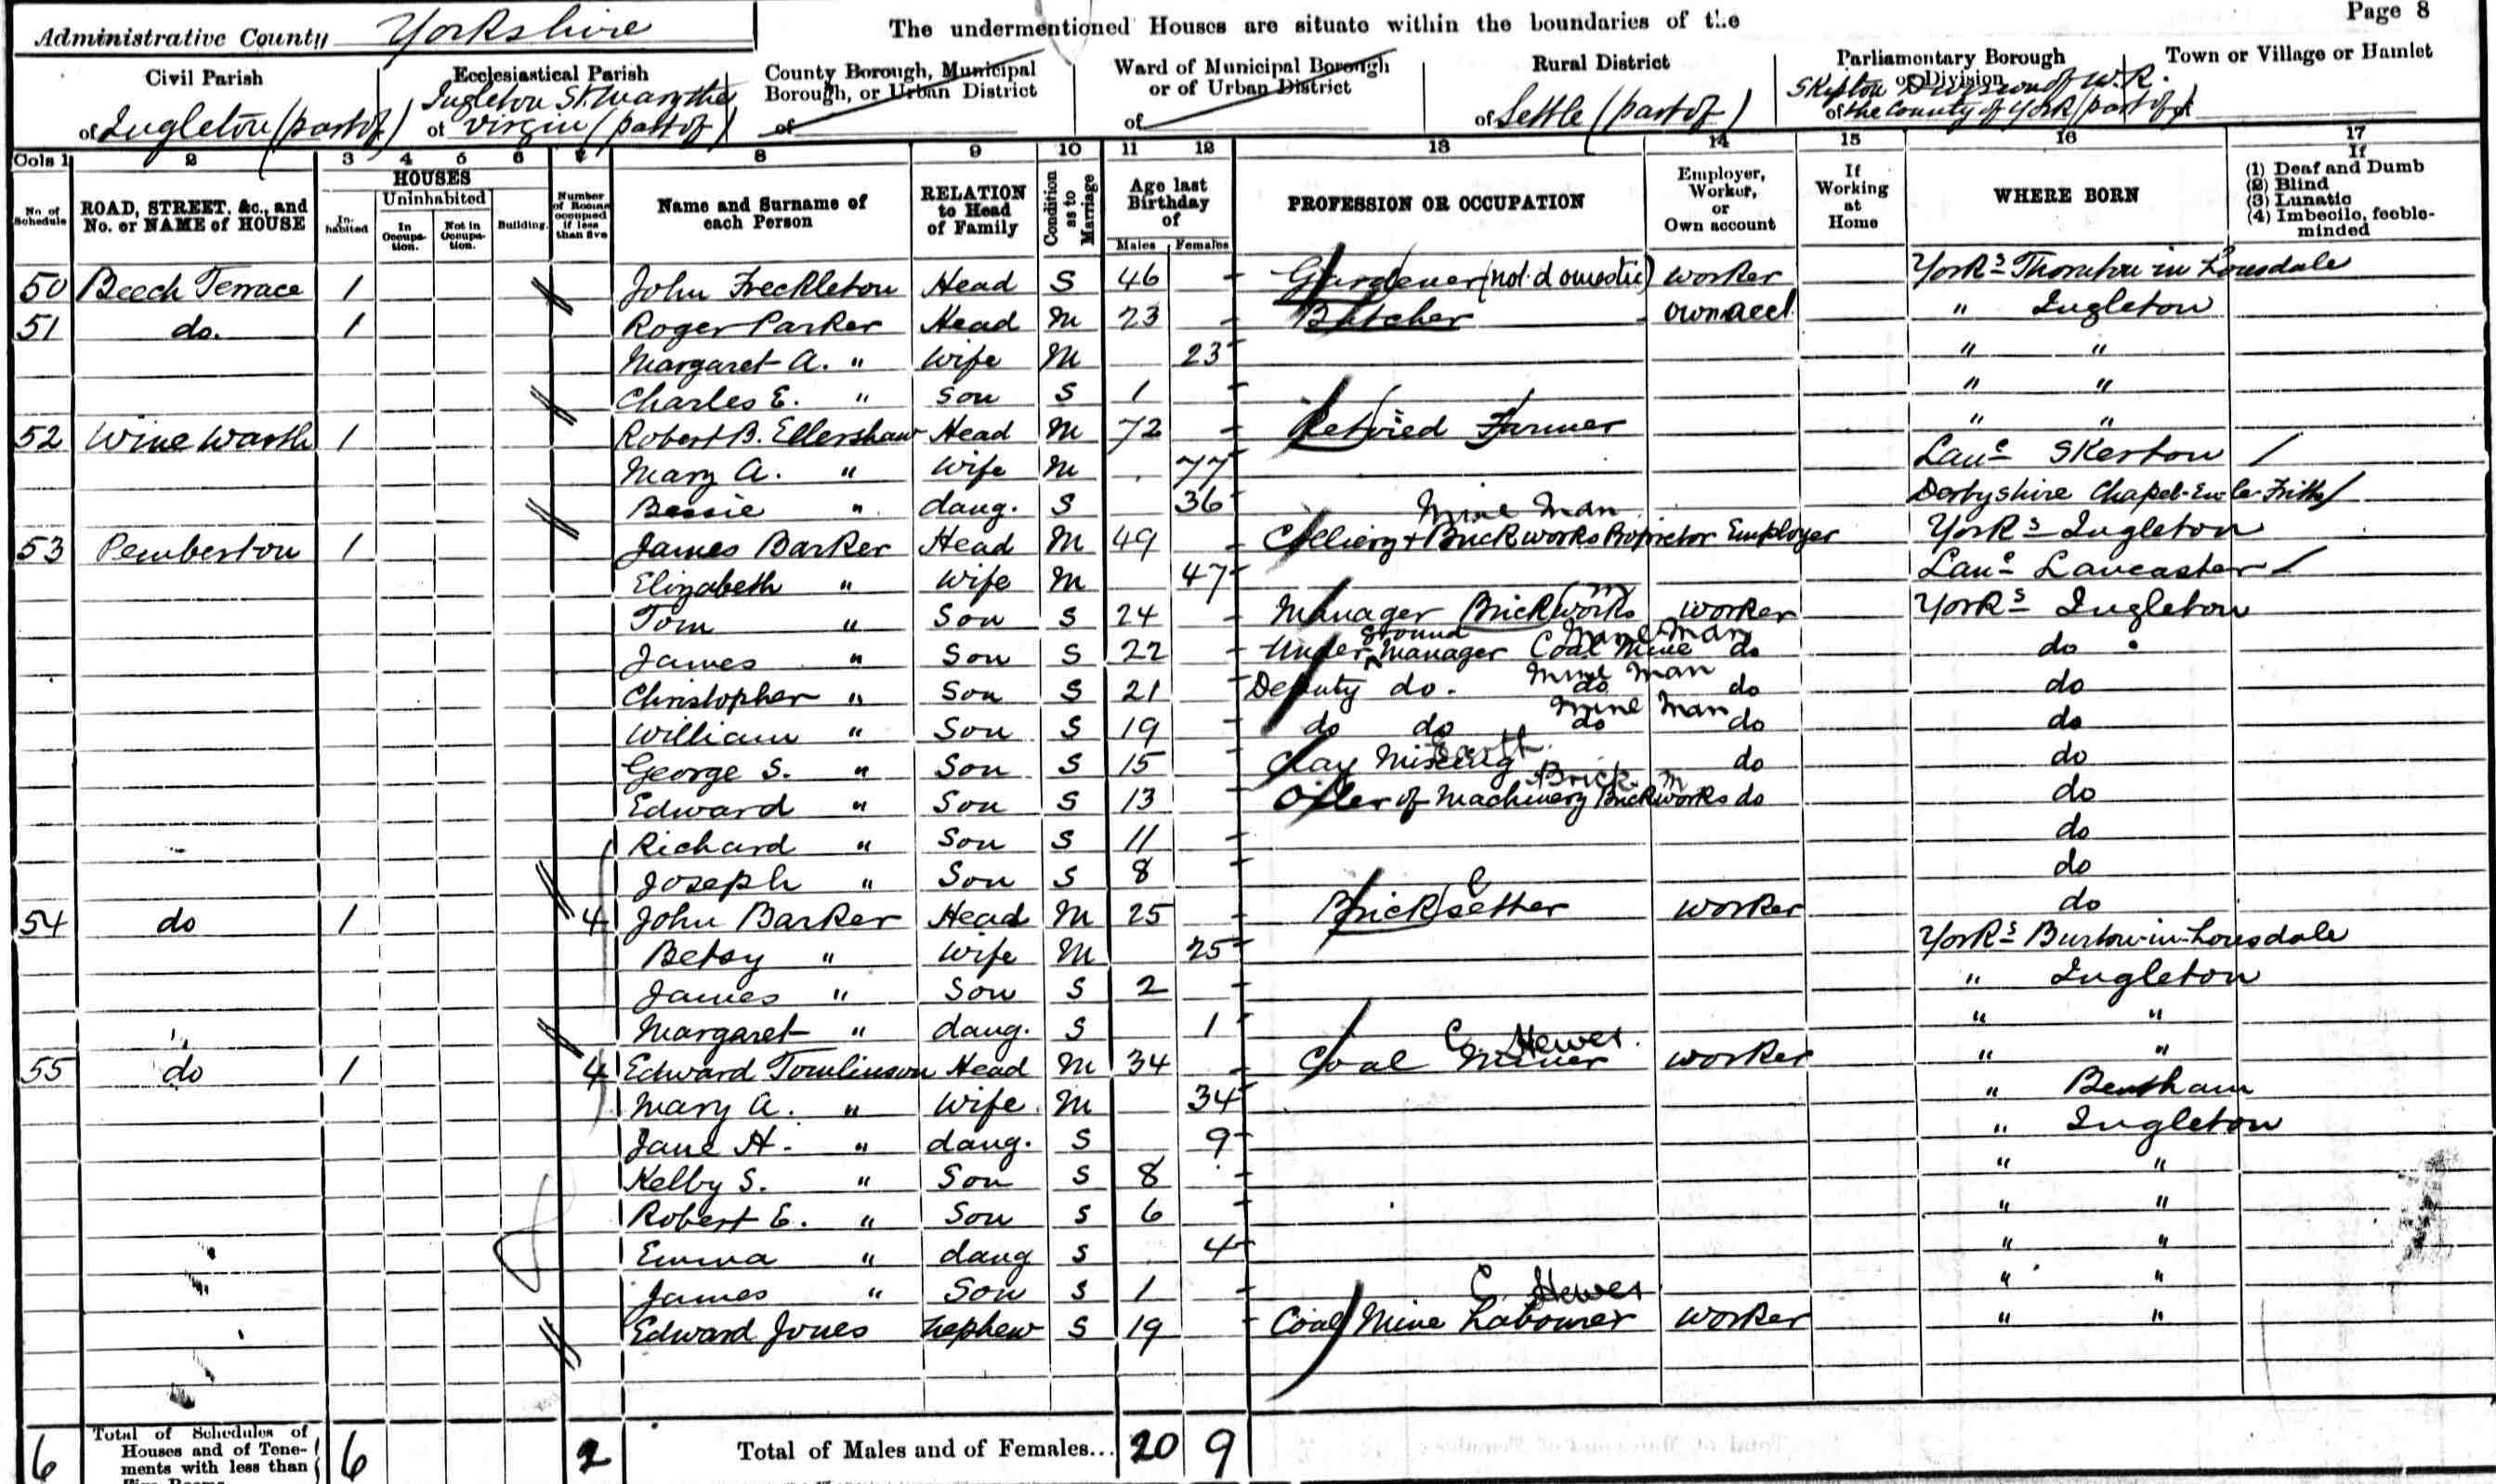 Page 8
Administrative County Yorkshire The undermentioned Houses are situate within the boundaries of the
Civil Parish Ecclesiastical Parish County Borough, Municipal Borough, or Urban District Ward of Municipal Borough or of Urban District Rural District Parliamentary Borough or Division Town or Village or Hamlet
of Ingleton (part of) Ingleton St. Mary the of Virgin (part of) of of of Settle (part of) Skipton Division of W.R. of the County of York (part of)
Cols 1 2 3 4 5 6 7 8 9 10 11 12 13 14 15 16 17
No. of Schedule ROAD, STREET, &c., and No. or NAME of HOUSE HOUSES Inhabited Uninhabited In Occupation. Not in Occupation. Building. Number of Rooms occupied if less than five Name and Surname of each Person RELATION to Head of Family Condition as to Marriage Age last Birthday of Males Females PROFESSION OR OCCUPATION Employer, Worker, or Own account If Working at Home WHERE BORN If (1) Deaf and Dumb (2) Blind (3) Lunatic (4) Imbecile, feeble-minded
50 Beech Terrace 1 John Freckleton Head S 46 Gardener (not domestic) worker Yorks Thornton in Lonsdale
51 do. 1 Roger Parker Head M 23 Butcher own acct. " Ingleton
Margaret A. " Wife M 23 " "
Charles E. " Son S 1 " "
52 Wine Warth 1 Robert B. Ellershaw Head M 72 Retired Farmer " "
Mary A. " Wife M 77 Lanc Skerton
Bessie " daug. S 36 Derbyshire Chapel-En-le-Frith
Mine Man
53 Pemberton 1 James Barker Head M 49 Colliery + Brickworks Proprietor Employer Yorks Ingleton
Elizabeth " Wife M 47 Lanc Lancaster
Tom " Son S 24 Manager Brickworks worker Yorks Ingleton
ground Mine Man
James " Son S 22 Under Manager Coal Mine do do
Mine Man
Christopher " Son S 21 Deputy do. do do do
Mine Man
William " Son S 19 do do do do do
George S. " Son S 15 Clay do do
Brick M
Edward " Son S 13 Oiler of Machinery Brickworks do do
Richard " Son S 11 do
Joseph " Son S 8 do
54 do 1 4 John Barker Head M 25 Bricksetter worker do
Betsy " Wife M 25 Yorks Burton-in-Lonsdale
James " Son S 2 " Ingleton
Margaret " daug. S 1 " "
C Hewer.
55 do 1 4 Edward Tomlinson Head M 34 Coal Miner worker " "
Mary A. " Wife M 34 " Bentham
Jane H. " daug. S 9 " Ingleton
Kelby S. " Son S 8 " "
Robert E. " Son S 6 " "
Emma " daug S 4 " "
James " Son S 1 " "
C. Hewer
Edward Jones nephew S 19 Coal Mine Labourer worker " "
6 Total of Schedules of Houses and of Tenements with less than 6 2 Total of Males and of Females... 20 9